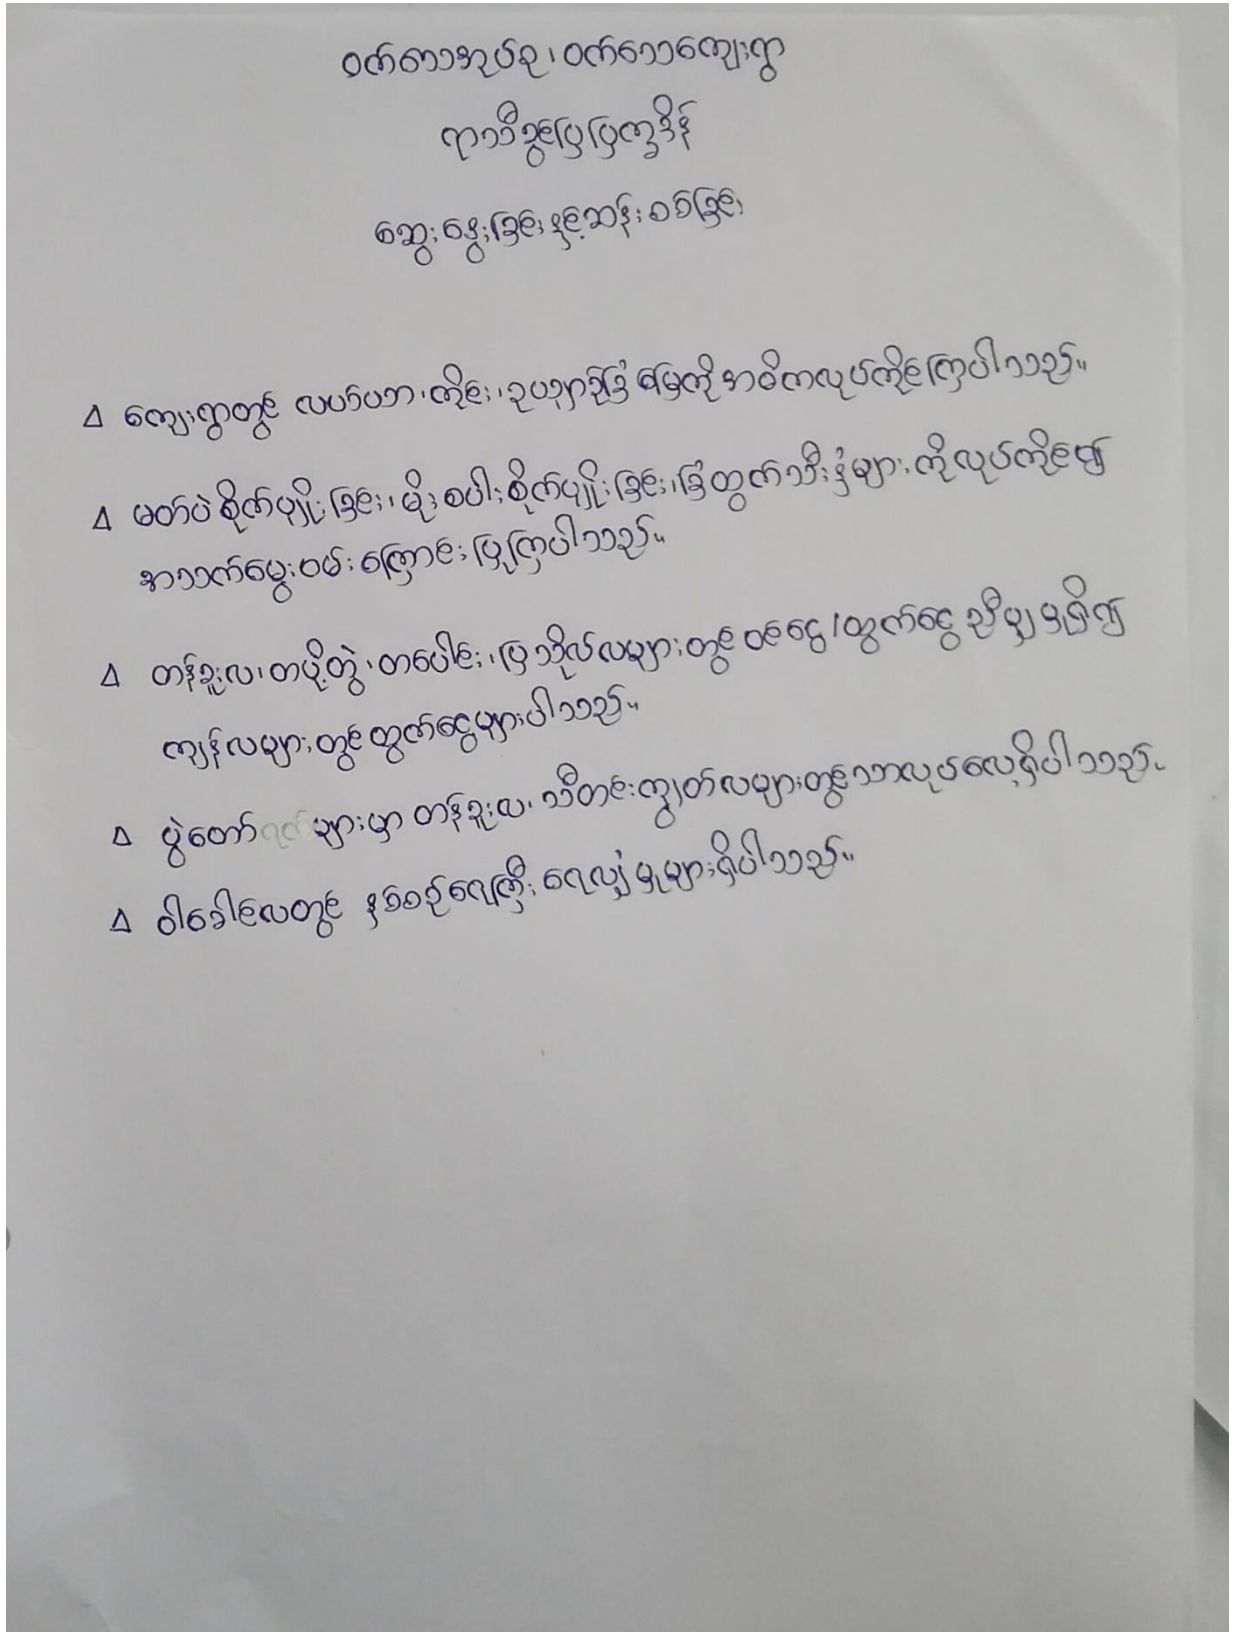 ဝက်သေအုပ်စု၊ ဝက်သေကျေးရွာ
ရာသီခွင်ပြပြက္ခဒိန်
ဆွေးနွေးခြင်းနှင့်ဆန်းစစ်ခြင်း
Δ ကျေးရွာတွင် လယ်ယာ၊ ကိုင်း၊ ဥယျာဉ်ခြံ မြေကို အဓိကလုပ်ကိုင်ကြပါသည်။
Δ မတ်ပဲစိုက်ပျိုးခြင်း၊ မိုးစပါးစိုက်ပျိုးခြင်း၊ ခြံထွက်သီးနှံများကိုလုပ်ကိုင်၍
အသက်မွေးဝမ်းကြောင်းပြုကြပါသည်။
Δ တန်ခူးလ၊ တပို့တွဲ၊ တပေါင်း၊ ပြာသိုလ်လများတွင် ဝင်ငွေ/ထွက်ငွေ ညီမျှမှုရှိ၍
ကျန်လများတွင်ထွက်ငွေများပါသည်။
Δ ပွဲတော်ရက်များမှာ တန်ခူးလ၊ သီတင်းကျွတ်လများတွင်သာလုပ်လေ့ရှိပါသည်။
Δ ဝါခေါင်လတွင် နှစ်စဉ်ရေကြီး ရေလျှံမှုများရှိပါသည်။